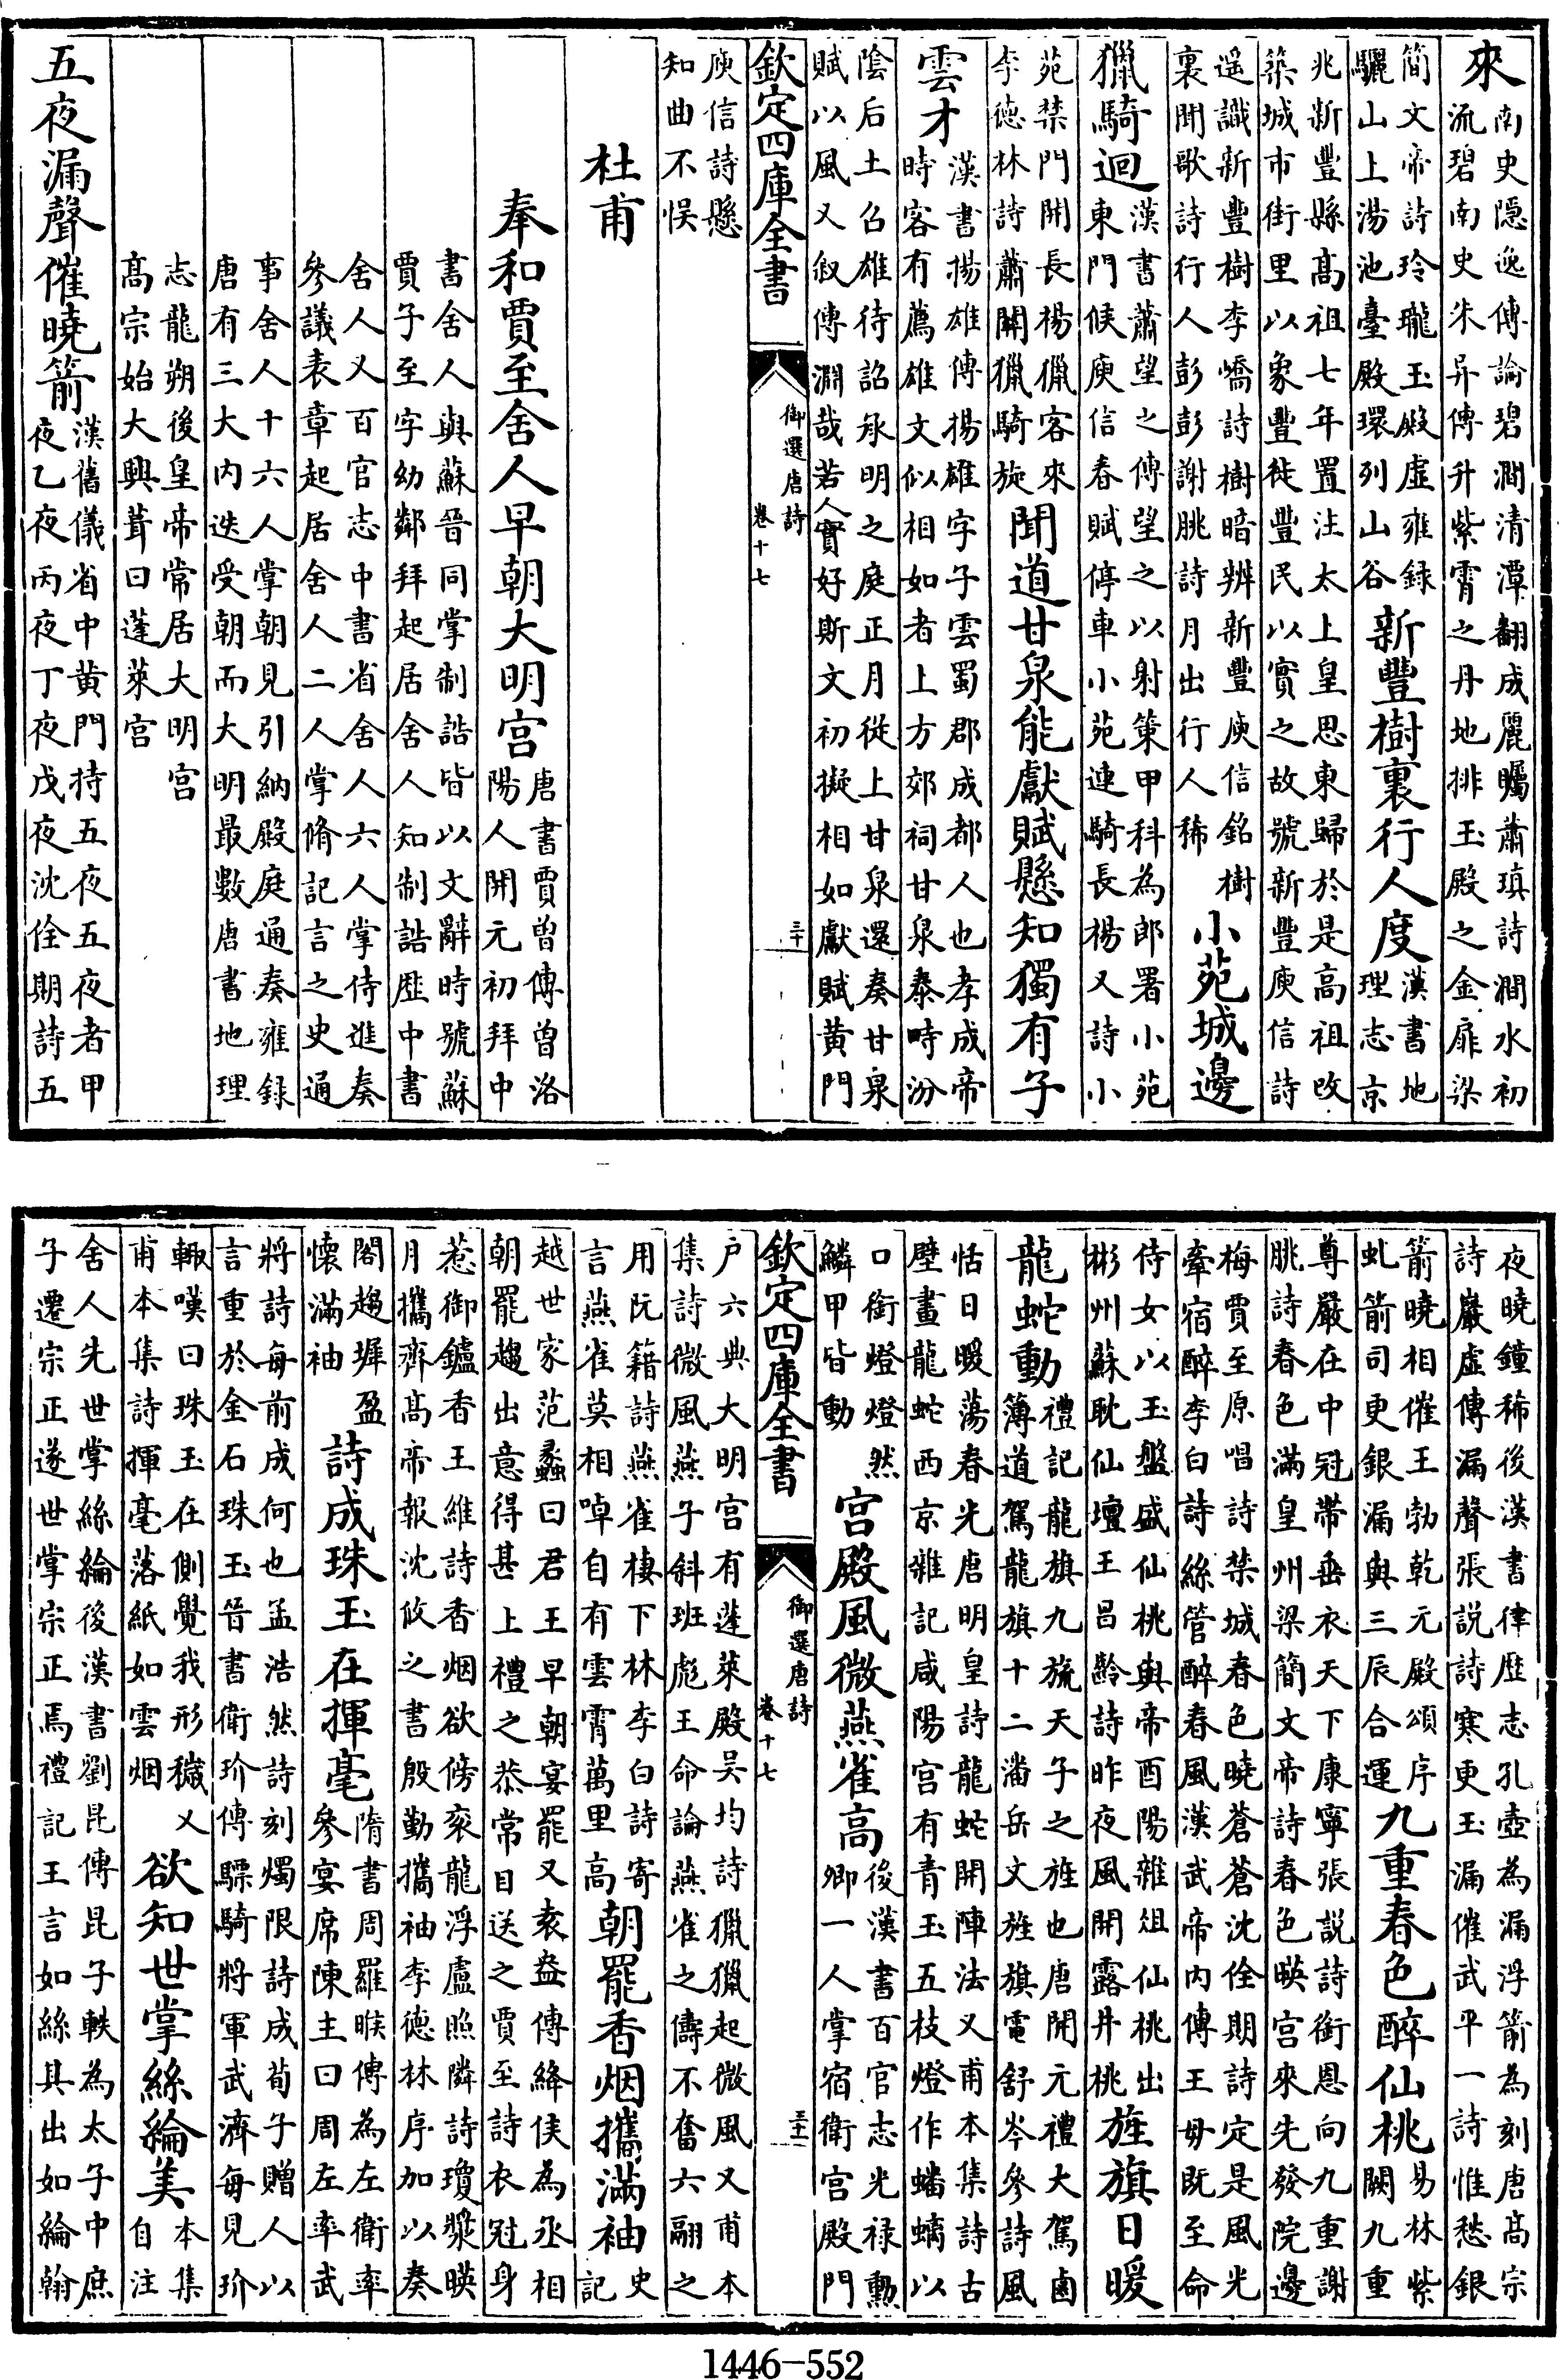 來南史隱逸傳論碧澗清潭翻成麗矚蕭瑱詩澗水初流碧南史朱异傳升紫霄之丹地排玉殿之金扉梁
簡文帝詩玲瓏玉殿虛雍録驪山上湯池臺殿環列山谷新豐樹裏行人度漢書地理志京
兆新豐縣高祖七年置注太上皇思東歸於是高祖改築城市街里以象豐徙豐民以實之故號新豐庾信詩
遥識新豐樹李嶠詩樹暗辨新豐庾信銘樹裏聞歌詩行人彭彭謝朓詩月出行人稀小苑城邊
獵騎迴漢書蕭望之傳望之以射策甲科為郎署小苑東門候庾信春賦停車小苑連騎長楊又詩小
苑禁門開長楊獵客來李德林詩蕭關獵騎旋聞道甘泉能獻賦懸知獨有子
雲才漢書揚雄傳揚雄字子雲蜀郡成都人也孝成帝時客有薦雄文似相如者上方郊祠甘泉泰畤汾
陰后土召雄待詔承明之庭正月從上甘泉還奏甘泉賦以風又叙傳淵哉若人實好斯文初擬相如獻賦黄門
欽定四庫全書 御選唐詩 卷十七 三十
庾信詩懸知曲不悮
杜甫
奉和賈至舍人早朝大明宫唐書賈曽傳曽洛陽人開元初拜中
書舍人與蘇晉同掌制誥皆以文辭時號蘇賈子至字幼鄰拜起居舍人知制誥歴中書
舍人又百官志中書省舍人六人掌侍進奏參議表章起居舍人二人掌脩記言之史通
事舍人十六人掌朝見引納殿庭通奏雍録唐有三大内迭受朝而大明最數唐書地理
志龍朔後皇帝常居大明宫高宗始大興葺曰蓬萊宫
五夜漏聲催曉箭漢舊儀省中黄門持五夜五夜者甲夜乙夜丙夜丁夜戊夜沈佺期詩五
夜曉鐘稀後漢書律歴志孔壺為漏浮箭為刻唐高宗詩巖虛傳漏聲張説詩寒更玉漏催武平一詩惟愁銀
箭曉相催王勃乾元殿頌序虬箭司更銀漏與三辰合運九重春色醉仙桃易林紫闕九重
尊嚴在中冠帶垂衣天下康寧張説詩銜恩向九重謝朓詩春色滿皇州梁簡文帝詩春色映宫來先發院邊
梅賈至原唱詩禁城春色曉蒼蒼沈佺期詩定是風光牽宿醉李白詩絲管醉春風漢武帝内傳王母既至命
侍女以玉盤盛仙桃與帝酉陽雜俎仙桃出彬州蘇耽仙壇王昌齡詩昨夜風開露井桃旌旗日暖
龍蛇動禮記龍旗九旒天子之旌也唐開元禮大駕鹵簿道駕龍旗十二潘岳文旌旗電舒岑參詩風
恬日暖蕩春光唐明皇詩龍蛇開陣法又甫本集詩古壁畫龍蛇西京雜記咸陽宫有青玉五枝燈作蟠螭以
口銜燈燈然鱗甲皆動宫殿風微燕雀高後漢書百官志光禄勳卿一人掌宿衛宫殿門
欽定四庫全書 御選唐詩 卷十七 三十一
户六典大明宫有蓬萊殿吴均詩獵獵起微風又甫本集詩微風燕子斜班彪王命論燕雀之儔不奮六翮之
用阮籍詩燕雀棲下林李白詩寄言燕雀莫相啅自有雲霄萬里高朝罷香烟攜滿袖史記
越世家范蠡曰君王早朝宴罷又袁盎傳絳侯為丞相朝罷趨出意得甚上禮之恭常目送之賈至詩衣冠身
惹御鑪香王維詩香烟欲傍衮龍浮盧照隣詩瓊漿映月攜齊高帝報沈攸之書殷勤攜袖李德林序加以奏
閣趨墀盈懷滿袖詩成珠玉在揮毫隋書周羅睺傳為左衛率參宴席陳主曰周左率武
將詩每前成何也孟浩然詩刻燭限詩成荀子贈人以言重於金石珠玉晉書衛玠傳驃騎將軍武濟每見玠
輙嘆曰珠玉在側覺我形穢又甫本集詩揮毫落紙如雲烟欲知世掌絲綸美本集自注
舍人先世掌絲綸後漢書劉昆傳昆子軼為太子中庶子遷宗正遂世掌宗正焉禮記王言如絲其出如綸翰
1446-552